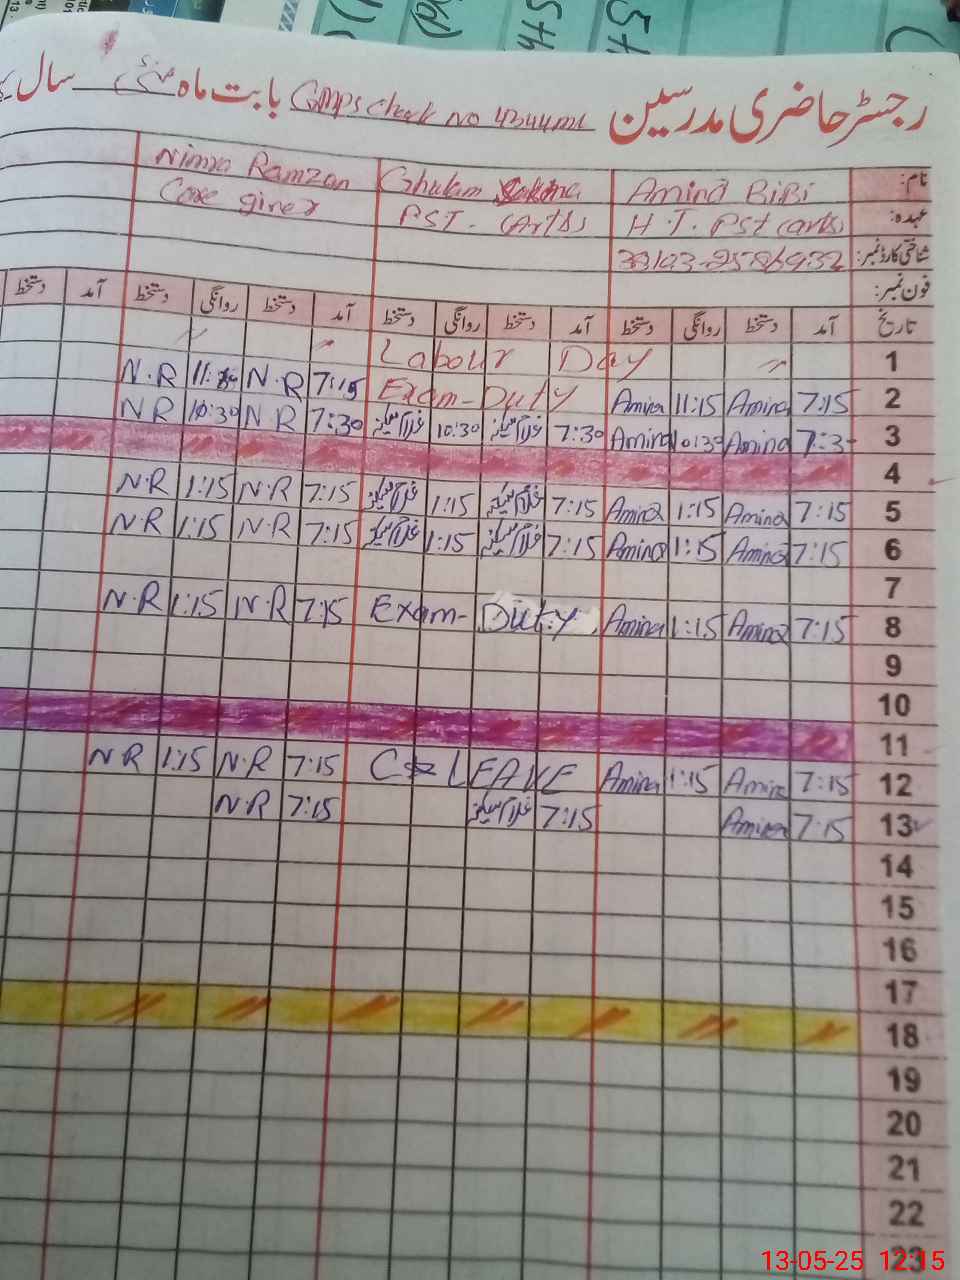 رجسٹر حاضری مدرسین GMPS Chak No 434 بابت ماہ مئی سال
نام: Amina BiBi Ghulam Sakina Nimra Ramzan
عہدہ: H.T. PST (arts) PST. (Arts) Care giver
شناختی کارڈ نمبر:
فون نمبر:
تاریخ آمد دستخط روانگی دستخط آمد دستخط روانگی دستخط آمد دستخط روانگی دستخط آمد دستخط
1 Labour Day
2 7:15 Amina 11:15 Amina Exam-Duty 7:15 N.R N.R
3 Amina 10:30 Amina 7:30 غلام سکینہ 10:30 غلام سکینہ 7:30 N.R 10:30 N.R
4
5 7:15 Amina 1:15 Amina 7:15 غلام سکینہ 1:15 غلام سکینہ 7:15 N.R 1:15 N.R
6 7:15 Amina 1:15 Amina 7:15 غلام سکینہ 1:15 غلام سکینہ 7:15 N.R 1:15 N.R
7
8 7:15 Amina 1:15 Amina Exam-Duty 7:15 N.R 1:15 N.R
9
10
11
12 7:15 Amina 1:15 Amina LEAVE 7:15 N.R 1:15 N.R
13 7:15 Amina 7:15 غلام سکینہ 7:15 N.R
14
15
16
17
18
19
20
21
22
23
13-05-25 12:15